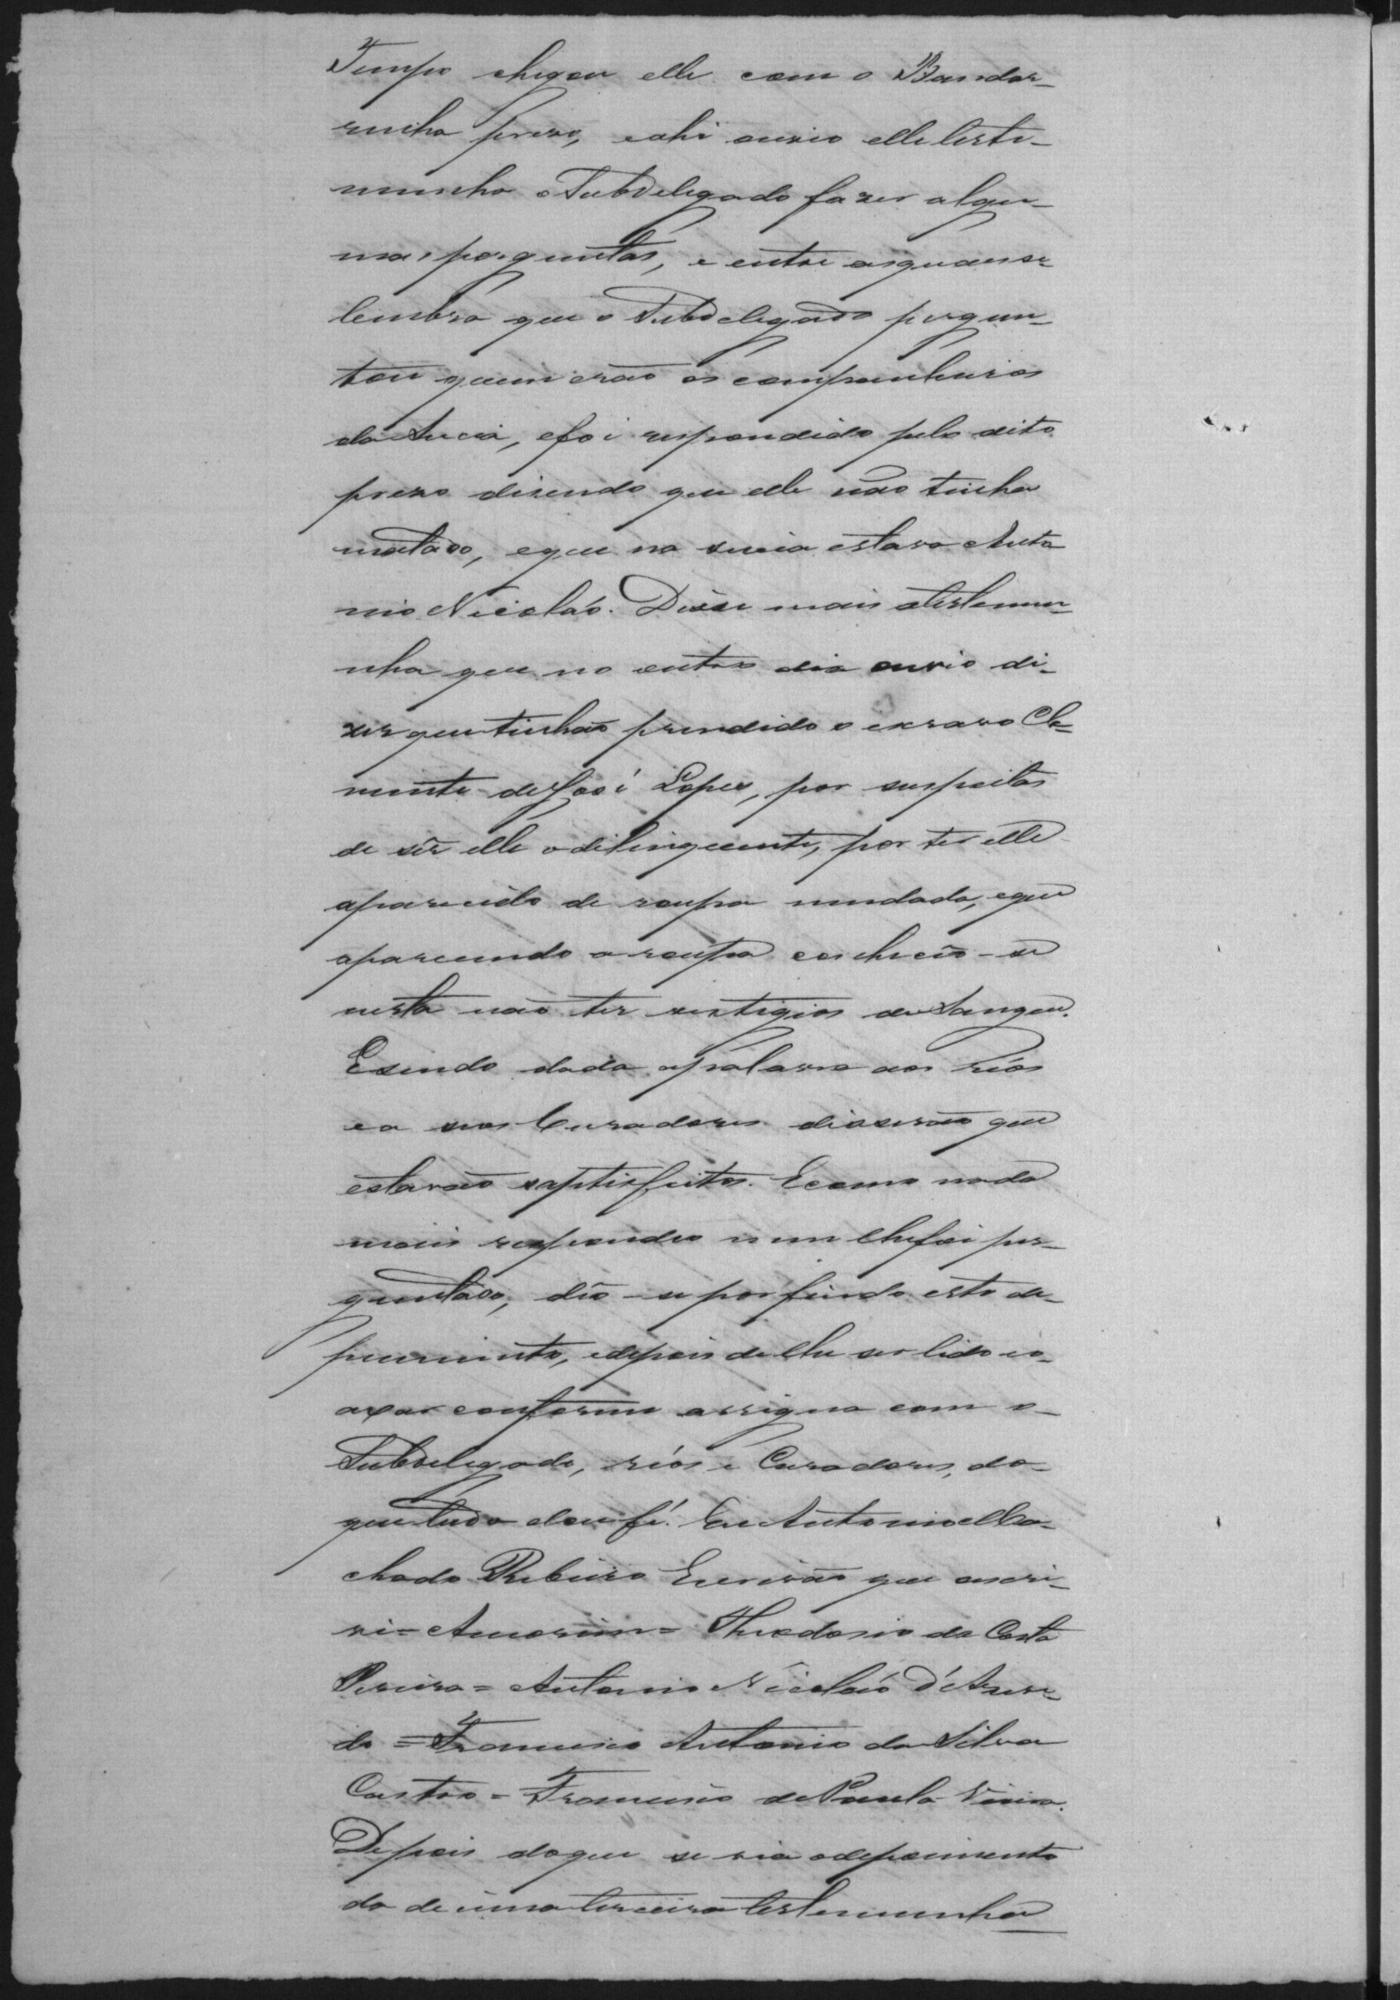 Tempo chegou elle com o Bandar-
rinha prezo, e ahi ouvio elle teste-
munha o Subdelegado fazer algu-
mas perguntas, e entre as quaes se
lembra que o Subdelegado pergun-
tou quem erão os companheiros
da sucia, e foi respondido pelo dito
prezo disendo que elle não tinha
matado, e que na sucia estava Anto
nio Nicoláo. Disse mais a testemu-
nha que no outro dia ouvio di-
zer que tinhão prendido o escravo Cle-
mente de José Lopes, por suspeitas
de sêr elle o delinquente, por ter elle
aparecido de roupa mudada, e que
aparecendo a roupa conheceo-se
nesta não ter vestigios de Sangue.
E sendo dada a palavra aos réos
e a seos Curadores disserão que
estavão saptisfeitos. E como nada
mais respondeo nem lhe foi per-
guntado, deo-se por findo este de-
poimento, e depois de lhe ser lido e o
axar conforme assigna com o
Subdelegado, réos e Curadores, do
que tudo dou fé. Eu Antonio Ma-
chado Ribeiro Escrivão que escre-
vi = Amorim = Theodosio da Costa
Pereira = Antonio Nicoláo d'Azeve-
do = Francisco Antonio da Silva
Castro = Francisco de Paula Vieira.
Depois do que se via o depoimento
da decima terceira testemunha